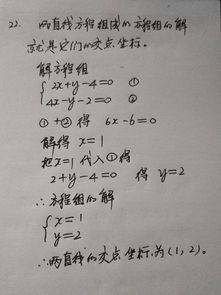 22. 两直线方程组成的方程组的解
就是它们的交点坐标。
解方程组
{2x+y-4=0 ①
4x-y-2=0 ②
①+②得 6x-6=0
解得 x=1
把x=1代入①得
2+y-4=0 得 y=2
∴方程组的解
{x=1
y=2
∴两直线的交点坐标为(1,2).